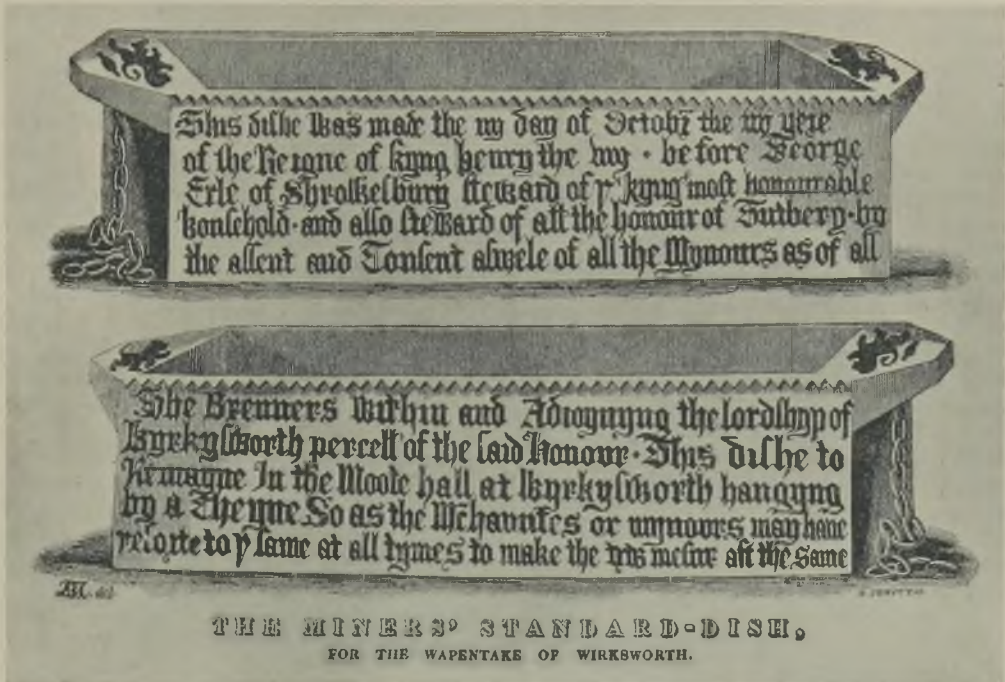 This dishe was made the iiij day of Octobr the iiij yere
of the Reigne of kyng henry the viij · before George
Erle of Shrowesbury steward of yͤ kyng most honourable
household · and also steward of all the honour of Tutbery · by
the assent and Consent aswele of all the Mynours as of all
The Brenners within and Adioynyng the lordshyp of
Wyrkysworth percell of the said honour · This dishe to
Remayne In the Moote hall at Wyrkysworth hangyng
by a Cheyne So as the Mchauntes or mynours may have
resorte to yͤ same at all tymes to make the trw mesure aft the same
THE MINERS' STANDARD-DISH,
FOR THE WAPENTAKE OF WIRKSWORTH.